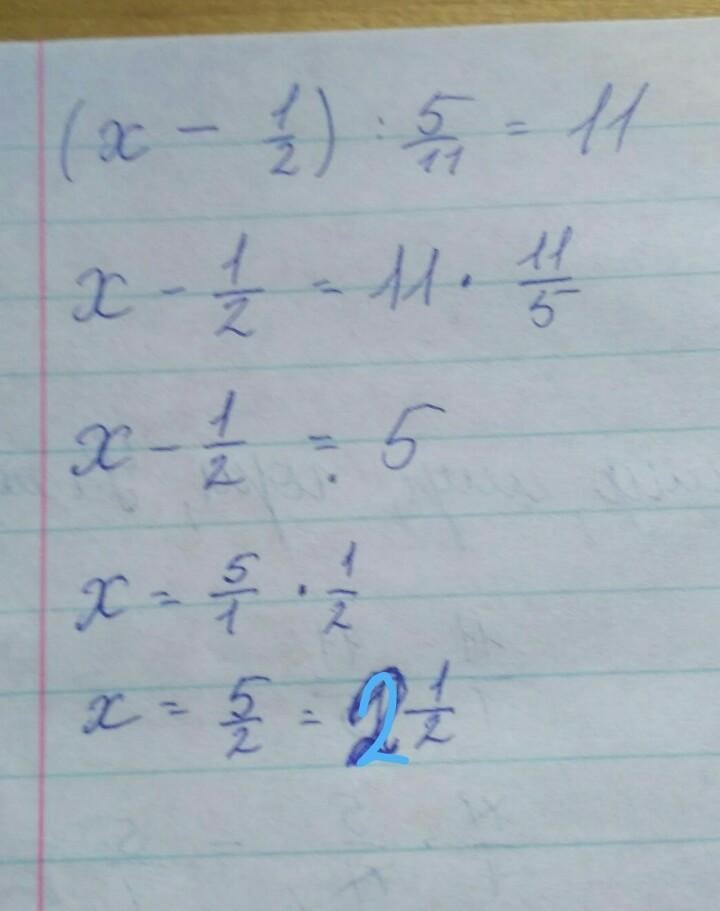 (x - 1/2) : 5/11 = 11
x - 1/2 = 11 · 11/5
x - 1/2 = 5
x = 5/1 · 1/2
x = 5/2 = 2 1/2